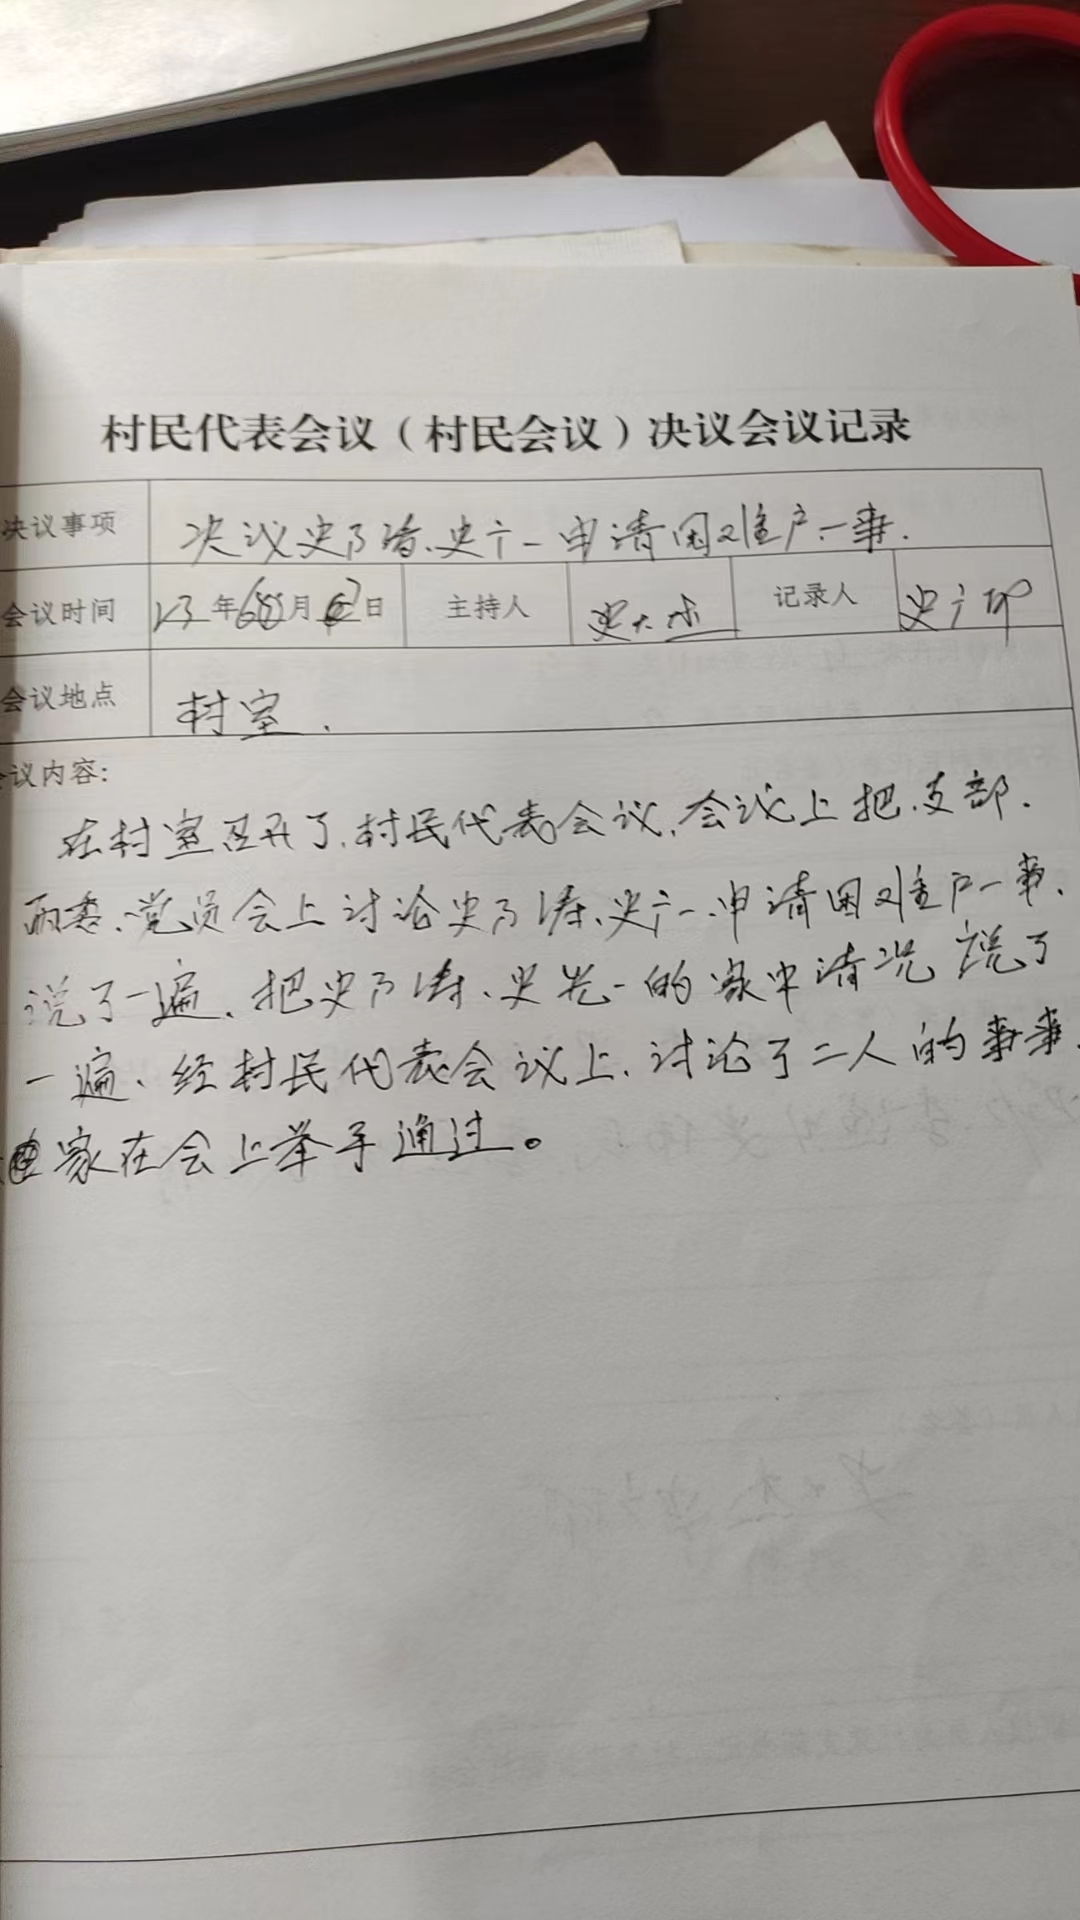 村民代表会议（村民会议）决议会议记录
决议事项 决议史乃涛、史广一申请困难户一事.
会议时间 23年 月 日 主持人 史大杰 记录人 史广印
会议地点 村室.
会议内容:
在村室召开了.村民代表会议,会议上把.支部.
两委、党员会上讨论史乃涛、史广一.申请困难户一事.
说了一遍、把史乃涛、史 一的家中清况说了
一遍、经村民代表会议上.讨论了二人的事事.
家在会上举手通过。